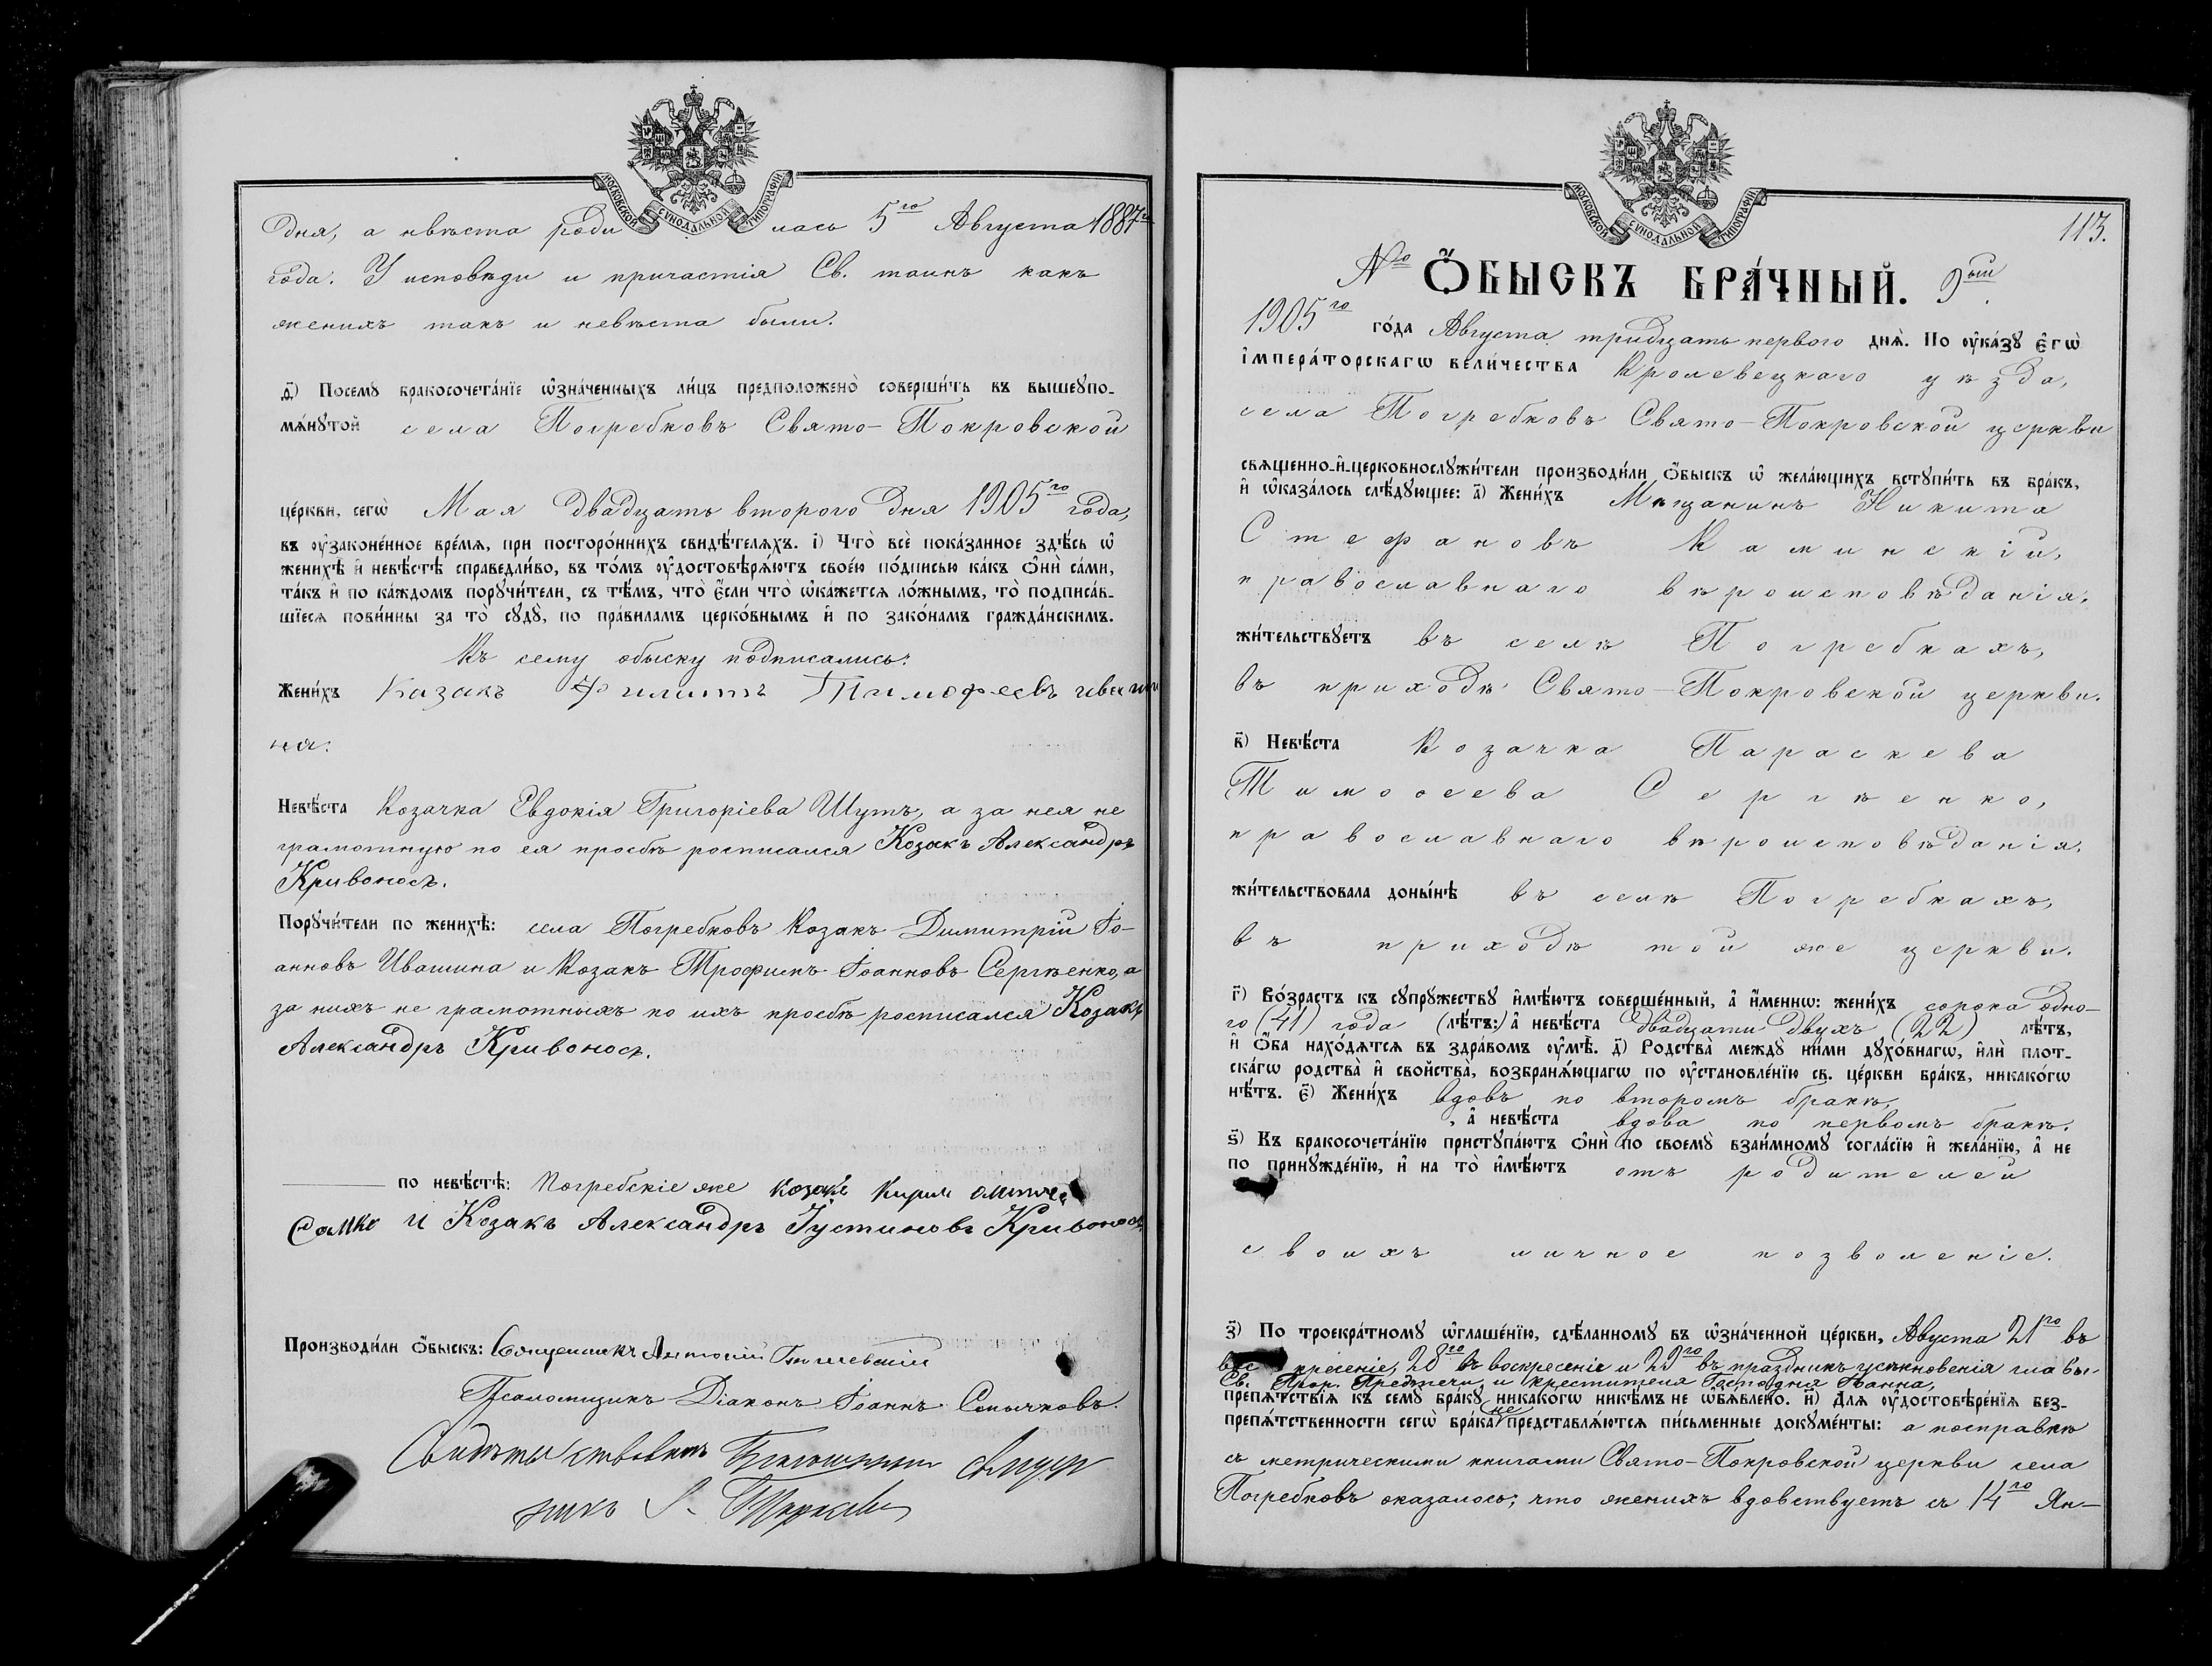 МОСКОВСКОЙ СѴНОДАЛЬНОЙ ТИПОГРАФІИ
дня, а нвѣста роди лась 5го Августа 1887го
года. У исповѣди и причастія Св. таинъ какъ
женихъ такъ и невѣста были.
д҃) Посемꙋ бракосочета́нїе ѡ҆зна́ченныхъ ли́цъ предположено̀ соверши́ть въ вышеупо-
мѧ́нꙋтой села Погребковъ Свято-Покровской
це́ркви, сегѡ̀ Мая двадцать второго дня 1905го года,
въ ᲂу҆законе́нное вре́мѧ, при посторо́ннихъ свидѣ́телѧхъ. і҃) Что̀ всѐ пока́занное здѣ́сь ѡ҆
женихѣ̀ и҆ невѣ́стѣ справедли́во, въ то́мъ ᲂу҆достовѣрѧ́ютъ свое́ю по́дписью ка́къ ѻ҆нѝ са́ми,
та́къ и҆ по ка́ждомъ порꙋчи́тели, съ тѣ́мъ, что̀ є҆́сли что̀ ѡ҆ка́жется ло́жнымъ, то̀ подписа́в-
шїеся пови́нны за то̀ сꙋдꙋ̀, по пра́виламъ церко́внымъ и҆ по зако́намъ гражда́нскимъ.
Къ сему обыску подписались:
Жени́хъ Казакъ Филипъ Тимофеевъ иваши
на.
Невѣ́ста Козачка Евдокія Григоріева Шутъ, а за нея не
грамотную по ея просьбѣ росписался Козакъ Александръ
Кривоносъ.
Порꙋчи́тели по женихѣ̀: села Погребковъ Козакъ Димитрій Іо-
анновъ Ивашина и Козакъ Трофимъ Іоанновъ Сергѣенко, а
за нихъ не грамотныхъ по ихъ просбѣ росписался Козакъ
Александръ Кривоносъ.
по невѣ́стѣ: Погребскіе же козакъ Кирил
Сомко и Козакъ Александръ Іустиновъ Кривоносъ
Производи́ли ѻ҆́быскъ: Священникъ Антоній
Псаломщикъ Діаконъ Іоаннъ Смычковъ.
Свидѣтельствовалъ Благочинный священ
никъ
МОСКОВСКОЙ СѴНОДАЛЬНОЙ ТИПОГРАФІИ
113.
№ Ѻ҆́БЫСКЪ БРА́ЧНЫЙ. 9ый.
1905го го́да Августа тридцать первого днѧ̀. По ᲂу҆ка́зꙋ є҆гѡ̀
і҆мпера́торскагѡ вели́чества Кролевецкаго уѣзда,
села Погребковъ Свято-Покровской церкви
свѧщенно-и҆-церковнослꙋжи́тели производи́ли ѻ҆́быскъ ѡ҆ жела́ющихъ встꙋпи́ть въ бра́къ,
и҆ ѡ҆каза́лось слѣ́дꙋющее: а҃) Жени́хъ Мѣщанинъ Никита
Стефановъ Каминскій,
православнаго вѣроисповѣданія,
жи́тельствꙋетъ въ селѣ Погребкахъ,
въ приходѣ Свято-Покровской церкви.
в҃) Невѣ́ста Козачка Параскева
Тимоѳеева Сергѣенко,
православнаго вѣроисповѣданія.
жи́тельствовала доны́нѣ въ селѣ Погребкахъ,
въ приходѣ той же церкви.
г҃) Во́зрастъ къ сꙋпрꙋ́жествꙋ и҆мѣ́ютъ соверше́нный, а҆ и҆́меннѡ: жени́хъ сорока одно-
го (41) года (лѣ́тъ:) а҆ невѣ́ста двадцати двухъ (22) лѣ́тъ,
и҆ ѻ҆́ба нахо́дѧтся въ здра́вомъ ᲂу҆мѣ̀. д҃) Родства̀ междꙋ̀ ни́ми дꙋхо́внагѡ, и҆лѝ плот-
ска́гѡ родства̀ и҆ свойства̀, возбранѧ́ющагѡ по ᲂу҆становле́нїю св. це́ркви бра́къ, никако́гѡ
нѣ́тъ. є҃) Жени́хъ вдовъ по второмъ бракѣ,
, а҆ невѣ́ста вдова по первомъ бракѣ.
ѕ҃) Къ бракосочета́нїю пристꙋпа́ютъ ѻ҆нѝ по своемꙋ̀ взаи́мномꙋ согла́сїю и҆ жела́нїю, а҆ не
по принꙋжде́нїю, и҆ на то̀ и҆мѣ́ютъ отъ родителей
своихъ личное позволеніе.
з҃) По троекра́тномꙋ ѡ҆глаше́нїю, сдѣ́ланномꙋ въ ѡ҆зна́ченной це́ркви, Августа 21го въ
воскресеніе, 28го въ воскресеніе и 29го въ праздникъ усѣкновенія главы
Св. Прор. Предтечи и крестителя Господня Іоанна,
препѧ́тствїѧ къ семꙋ̀ бра́кꙋ никако́гѡ никѣ́мъ не ѡ҆б̾ѧ́влено. и҃) Длѧ ᲂу҆достовѣре́нїѧ без-
препѧ́тственности сегѡ̀ бра́ка не представлѧ́ются пи́сьменные докꙋме́нты: а посправкѣ
съ метрическими книгами Свято-Покровской церкви села
Погребковъ оказалось; что женихъ вдовствуетъ съ 14го Ян-